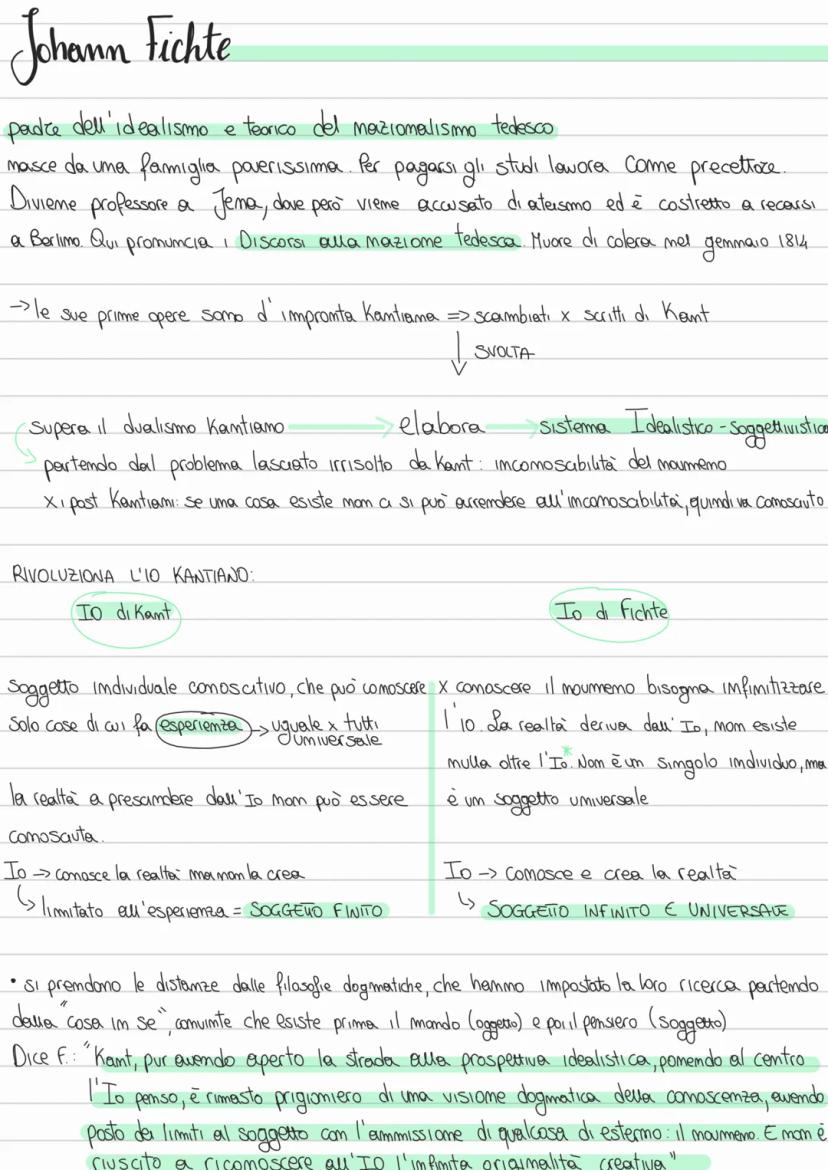 Johann Fichte
padre dell'idealismo e teorico del nazionalismo tedesco
nasce da una famiglia poverissima. Per pagarsi gli studi lavora come precettore.
Diviene professore a Jena, dove però viene accusato di ateismo ed è costretto a recarsi
a Berlino. Qui pronuncia i Discorsi alla nazione tedesca. Muore di colera nel gennaio 1814
→ le sue prime opere sono d'impronta Kantiana => scambiati x scritti di Kant
↓ SVOLTA
supera il dualismo Kantiano → elabora → sistema Idealistico-soggettivistico
partendo dal problema lasciato irrisolto da Kant: inconoscibilità del noumeno
x i post Kantiani: se una cosa esiste non ci si può arrendere all'inconoscibilità, quindi va conosciuto
RIVOLUZIONA L'IO KANTIANO:
IO di Kant
Io di Fichte
soggetto individuale conoscitivo, che può conoscere
solo cose di cui fa esperienza → uguale x tutti
universale
la realtà a prescindere dall'Io non può essere
conosciuta.
Io → conosce la realtà ma non la crea
↳ limitato all'esperienza = SOGGETTO FINITO
x conoscere il noumeno bisogna infinitizzare
l'io. La realtà deriva dall'Io, non esiste
nulla oltre l'Io*. Non è un singolo individuo, ma
è un soggetto universale
Io → conosce e crea la realtà
↳ SOGGETTO INFINITO E UNIVERSALE
• si prendono le distanze dalle filosofie dogmatiche, che hanno impostato la loro ricerca partendo
dalla "cosa in se", convinte che esiste prima il mondo (oggetto) e poi il pensiero (soggetto)
Dice F.: "Kant, pur avendo aperto la strada alla prospettiva idealistica, ponendo al centro
l'Io penso, è rimasto prigioniero di una visione dogmatica della conoscenza, avendo
posto dei limiti al soggetto con l'ammissione di qualcosa di esterno: il noumeno. E non è
riuscito a riconoscere all'IO l'infinita originalità creativa"